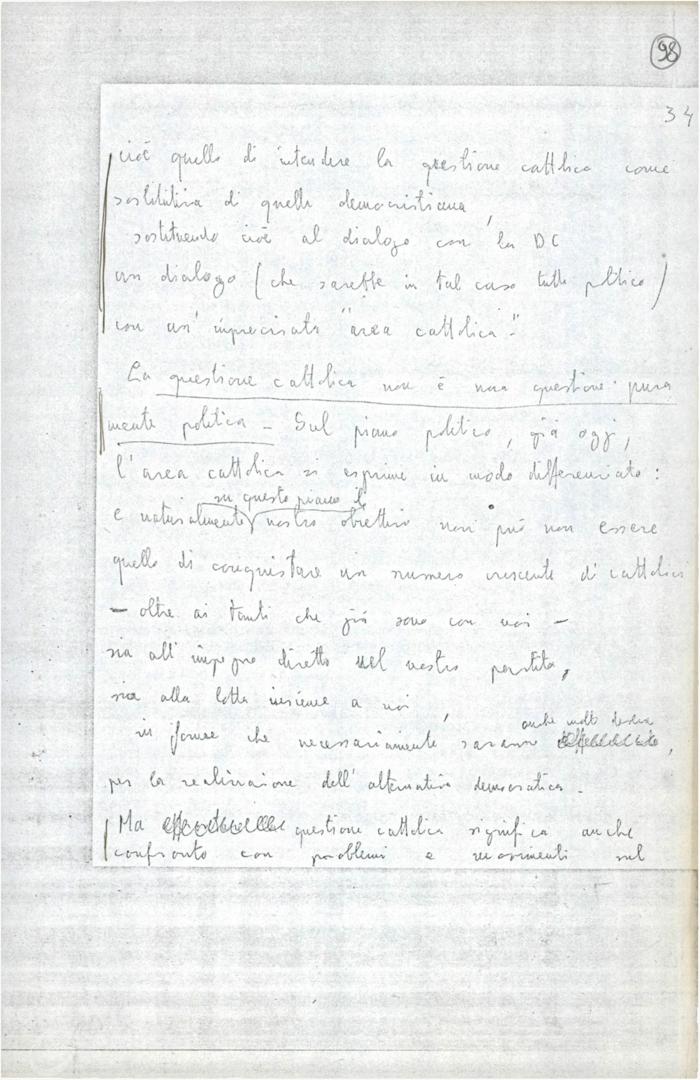 98
34
cioè quello di intendere la questione cattolica come
sostitutiva di quella democristiana,
sostituendo cioè al dialogo con la DC
un dialogo (che sarebbe in tal caso tutto politico)
con un'imprecisata "area cattolica".
La questione cattolica non è una questione pura
mente politica - Sul piano politico, già oggi,
l'area cattolica si esprime in modo differenziato:
su questo piano il
e naturalmente nostro obiettivo non può non essere
quello di conquistare un numero crescente di cattolici
- oltre ai tanti che già sono con noi -
sia all'impegno diretto nel nostro partito,
sia alla lotta insieme a noi,
anche molto diverse
in forme che necessariamente saranno ,
per la realizzazione dell'alternativa democratica.
Ma questione cattolica significa anche
confronto con problemi e movimenti sul